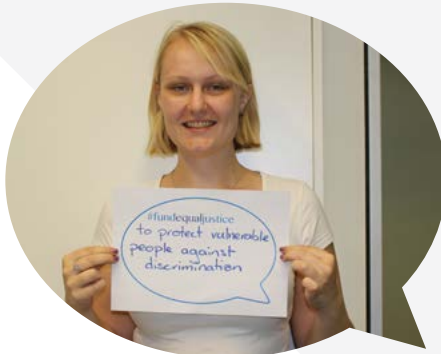 #fundequaljustice
to protect vulnerable
people against
discrimination